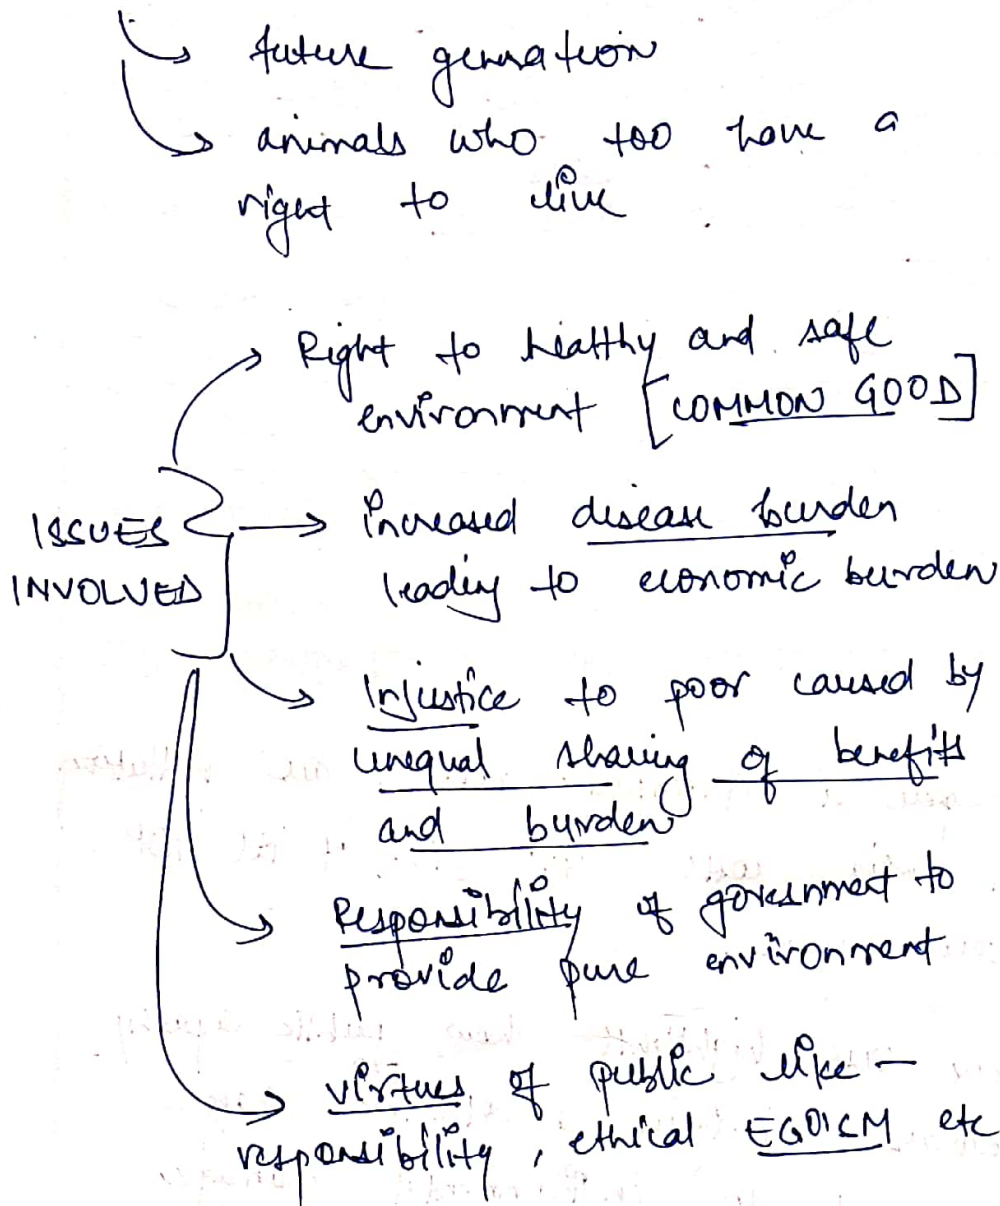 future generation
animals who too have a
right to live
Right to healthy and safe
environment [COMMON GOOD]
ISSUES
INVOLVED
increased disease burden
leading to economic burden
Injustice to poor caused by
unequal sharing of benefits
and burden
Responsibility of government to
provide pure environment
virtues of public like –
responsibility, ethical EGOISM etc